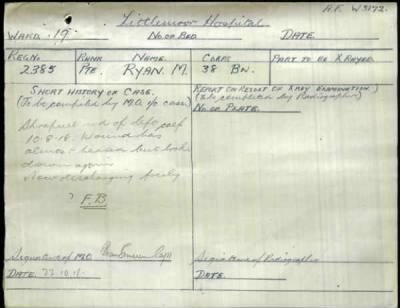 A.F. W3172.
Littlemoor Hospital
WARD. 19. No. OR BED DATE
REG. NO RANK NAME CORPS PART TO BE X RAYED
2385 PTE. RYAN. M. 38 BN.
SHORT HISTORY OF CASE.
(To be completed by M.O. i/c case)
Shrapnel wd of left calf
10-8-18. Wound has
almost healed but broke
down again
Now discharging freely
? F.B
REPORT OR RESULT OF X RAY EXAMINATION
(To be completed by Radiographer)
No. OR PLATE.
Signature of M.O. Capt
DATE. 22.10.18.
Signature of Radiographer
DATE.